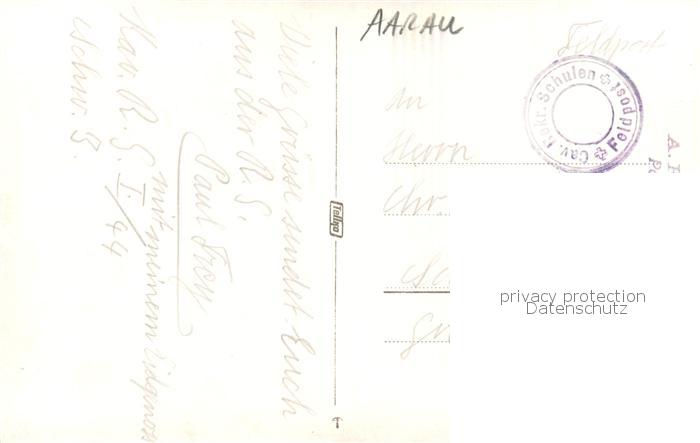 AARAU
Feldpost
Cav. Rekr. Schulen Feldpost
An
Herrn
Chr.
Viele Grüsse sendet Euch
aus der R. S.
Paul Frey
mit meinem Eidgenoss
Kav. R. S. I/44
Schw. 3.
Tellko
privacy protection
Datenschutz